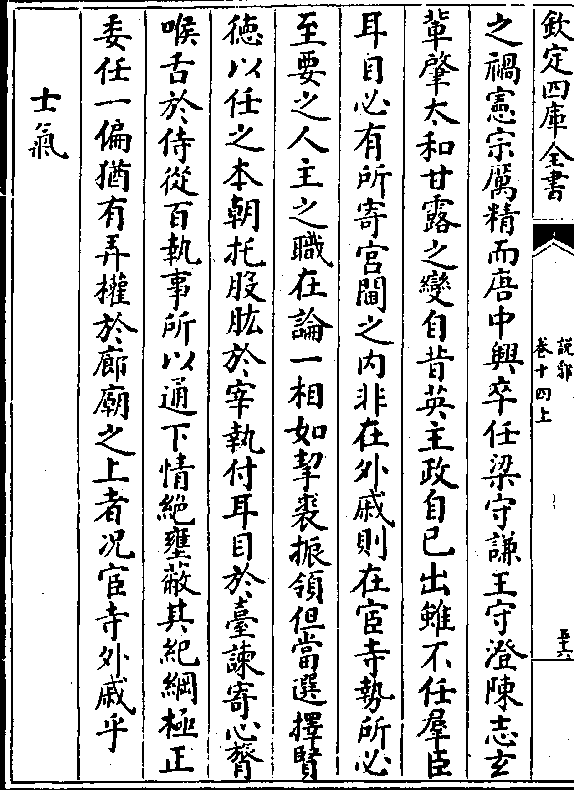 欽定四庫全書
說郛
卷十四上
五十六
之禍憲宗厲精而唐中興卒任梁守謙王守澄陳志玄
輩肇太和甘露之變自昔英主政自已出雖不任羣臣
耳目必有所寄宮閫之内非在外戚則在宦寺勢所必
至要之人主之職在論一相如挈裘振領但當選擇賢
徳以任之本朝托股肱於宰執付耳目於臺諫寄心膂
喉舌於侍從百執事所以通下情絶壅蔽其紀綱極正
委任一偏猶有弄權於廊廟之上者况宦寺外戚乎
士氣